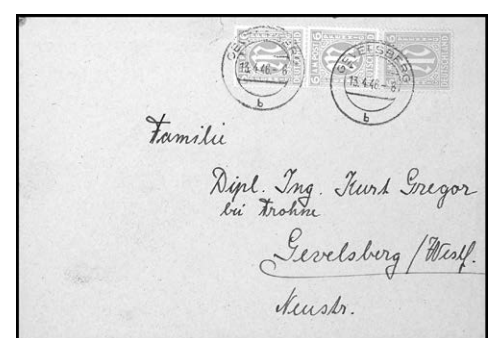 GEVELSBERG
13.4.46-8
b
GEVELSBERG
13.4.46-8
b
6 AM POST
DEUTSCHLAND
Familie
Dipl. Ing. Kurt Gregor
bei Trohne
Gevelsberg / Westf.
Neustr.